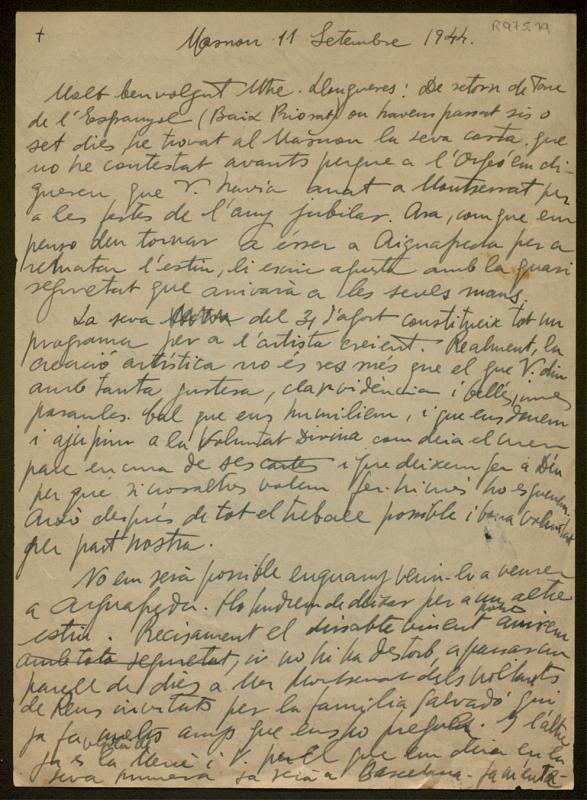 R975.19
+
Masnou 11 Setembre 1944.
Molt benvolgut Mtre. Llongueres: De retorn de Torre
de l'Espanyol (Baix Priorat) on havem passat sis o
set dies, he trovat al Masnou la seva carta, que
no he contestat avants perque a l'Orfeó em di-
gueren que V. havia anat a Montserrat per
a les festes de l'any jubilar. Ara, com que em
penso deu tornar a ésser a Aiguafreda per a
rematar l'estiu, li escric aquesta amb la quasi
seguretat que arrivarà a les seves mans.
La seva del 31 d'agost constitueix tot un
programa per a l'artista creient. Realment, la
creació artística no és res més que el que V. diu
amb tanta justesa, clarividència i belles imes
paraules. Cal que ens humiliem, i que ens donem
i ajupim a la Voluntat Divina com deia el meu
pare en una de ses cartes i que deixem fer a Déu
per que si nosaltres volem fer-hi més ho esguerrem.
Això després de tot el treball possible i bona voluntat
per part nostra.
No em serà possible enguany venir-lo a veure
a Aiguafreda. Ho haurem de deixar per a un altre
estiu. Precisament el dissabte vinent anirem
amb tota seguretat, si no hi ha destorb, a passar un
parell de dies a Mas Montserrat dels voltants
de Reus invitats per la família Salvadó qui
ja fa molts anys que ens ho prega. I l'altre
ja és la Mercè i V. pel que em deia en la
seva primera ja serà a Barcelona.